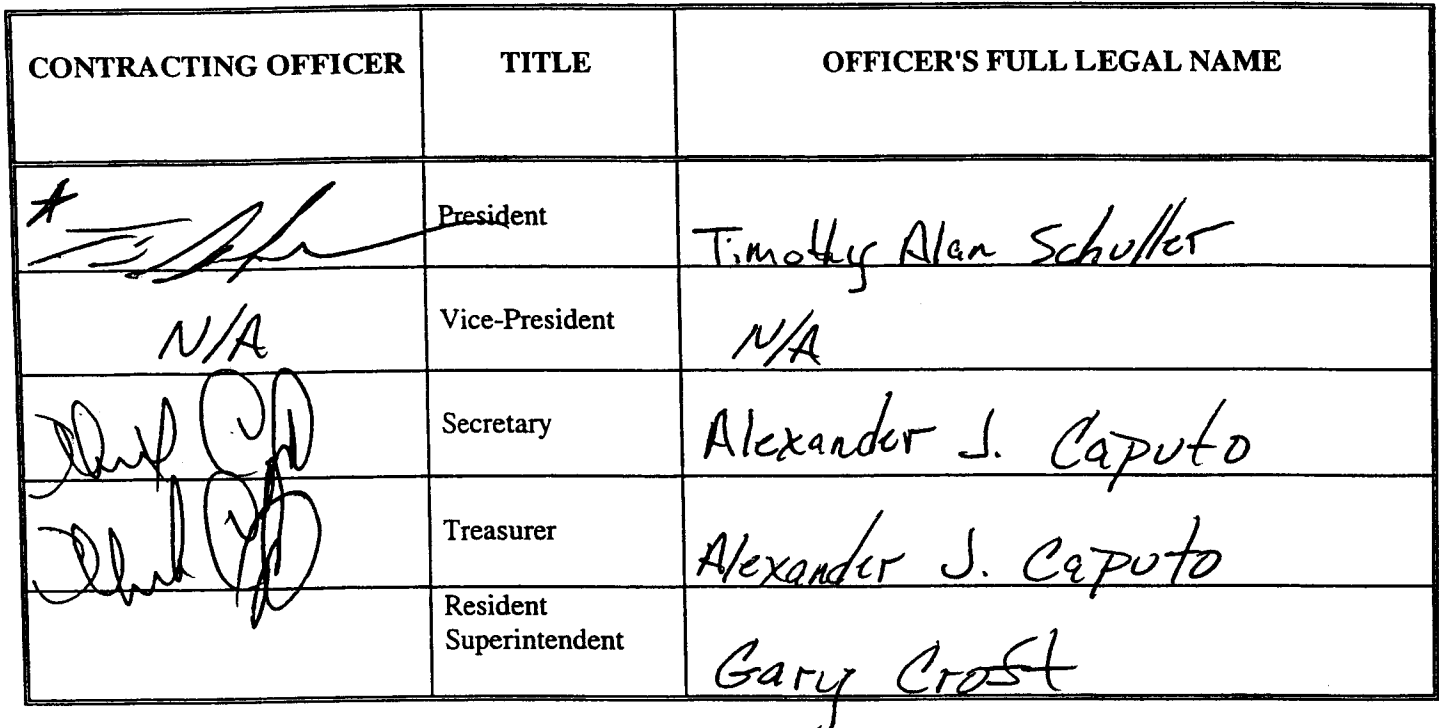 CONTRACTING OFFICER TITLE OFFICER'S FULL LEGAL NAME
* President Timothy Alan Schuller
N/A Vice-President N/A
Secretary Alexander J. Caputo
Treasurer Alexander J. Caputo
Resident
Superintendent
Gary Crost